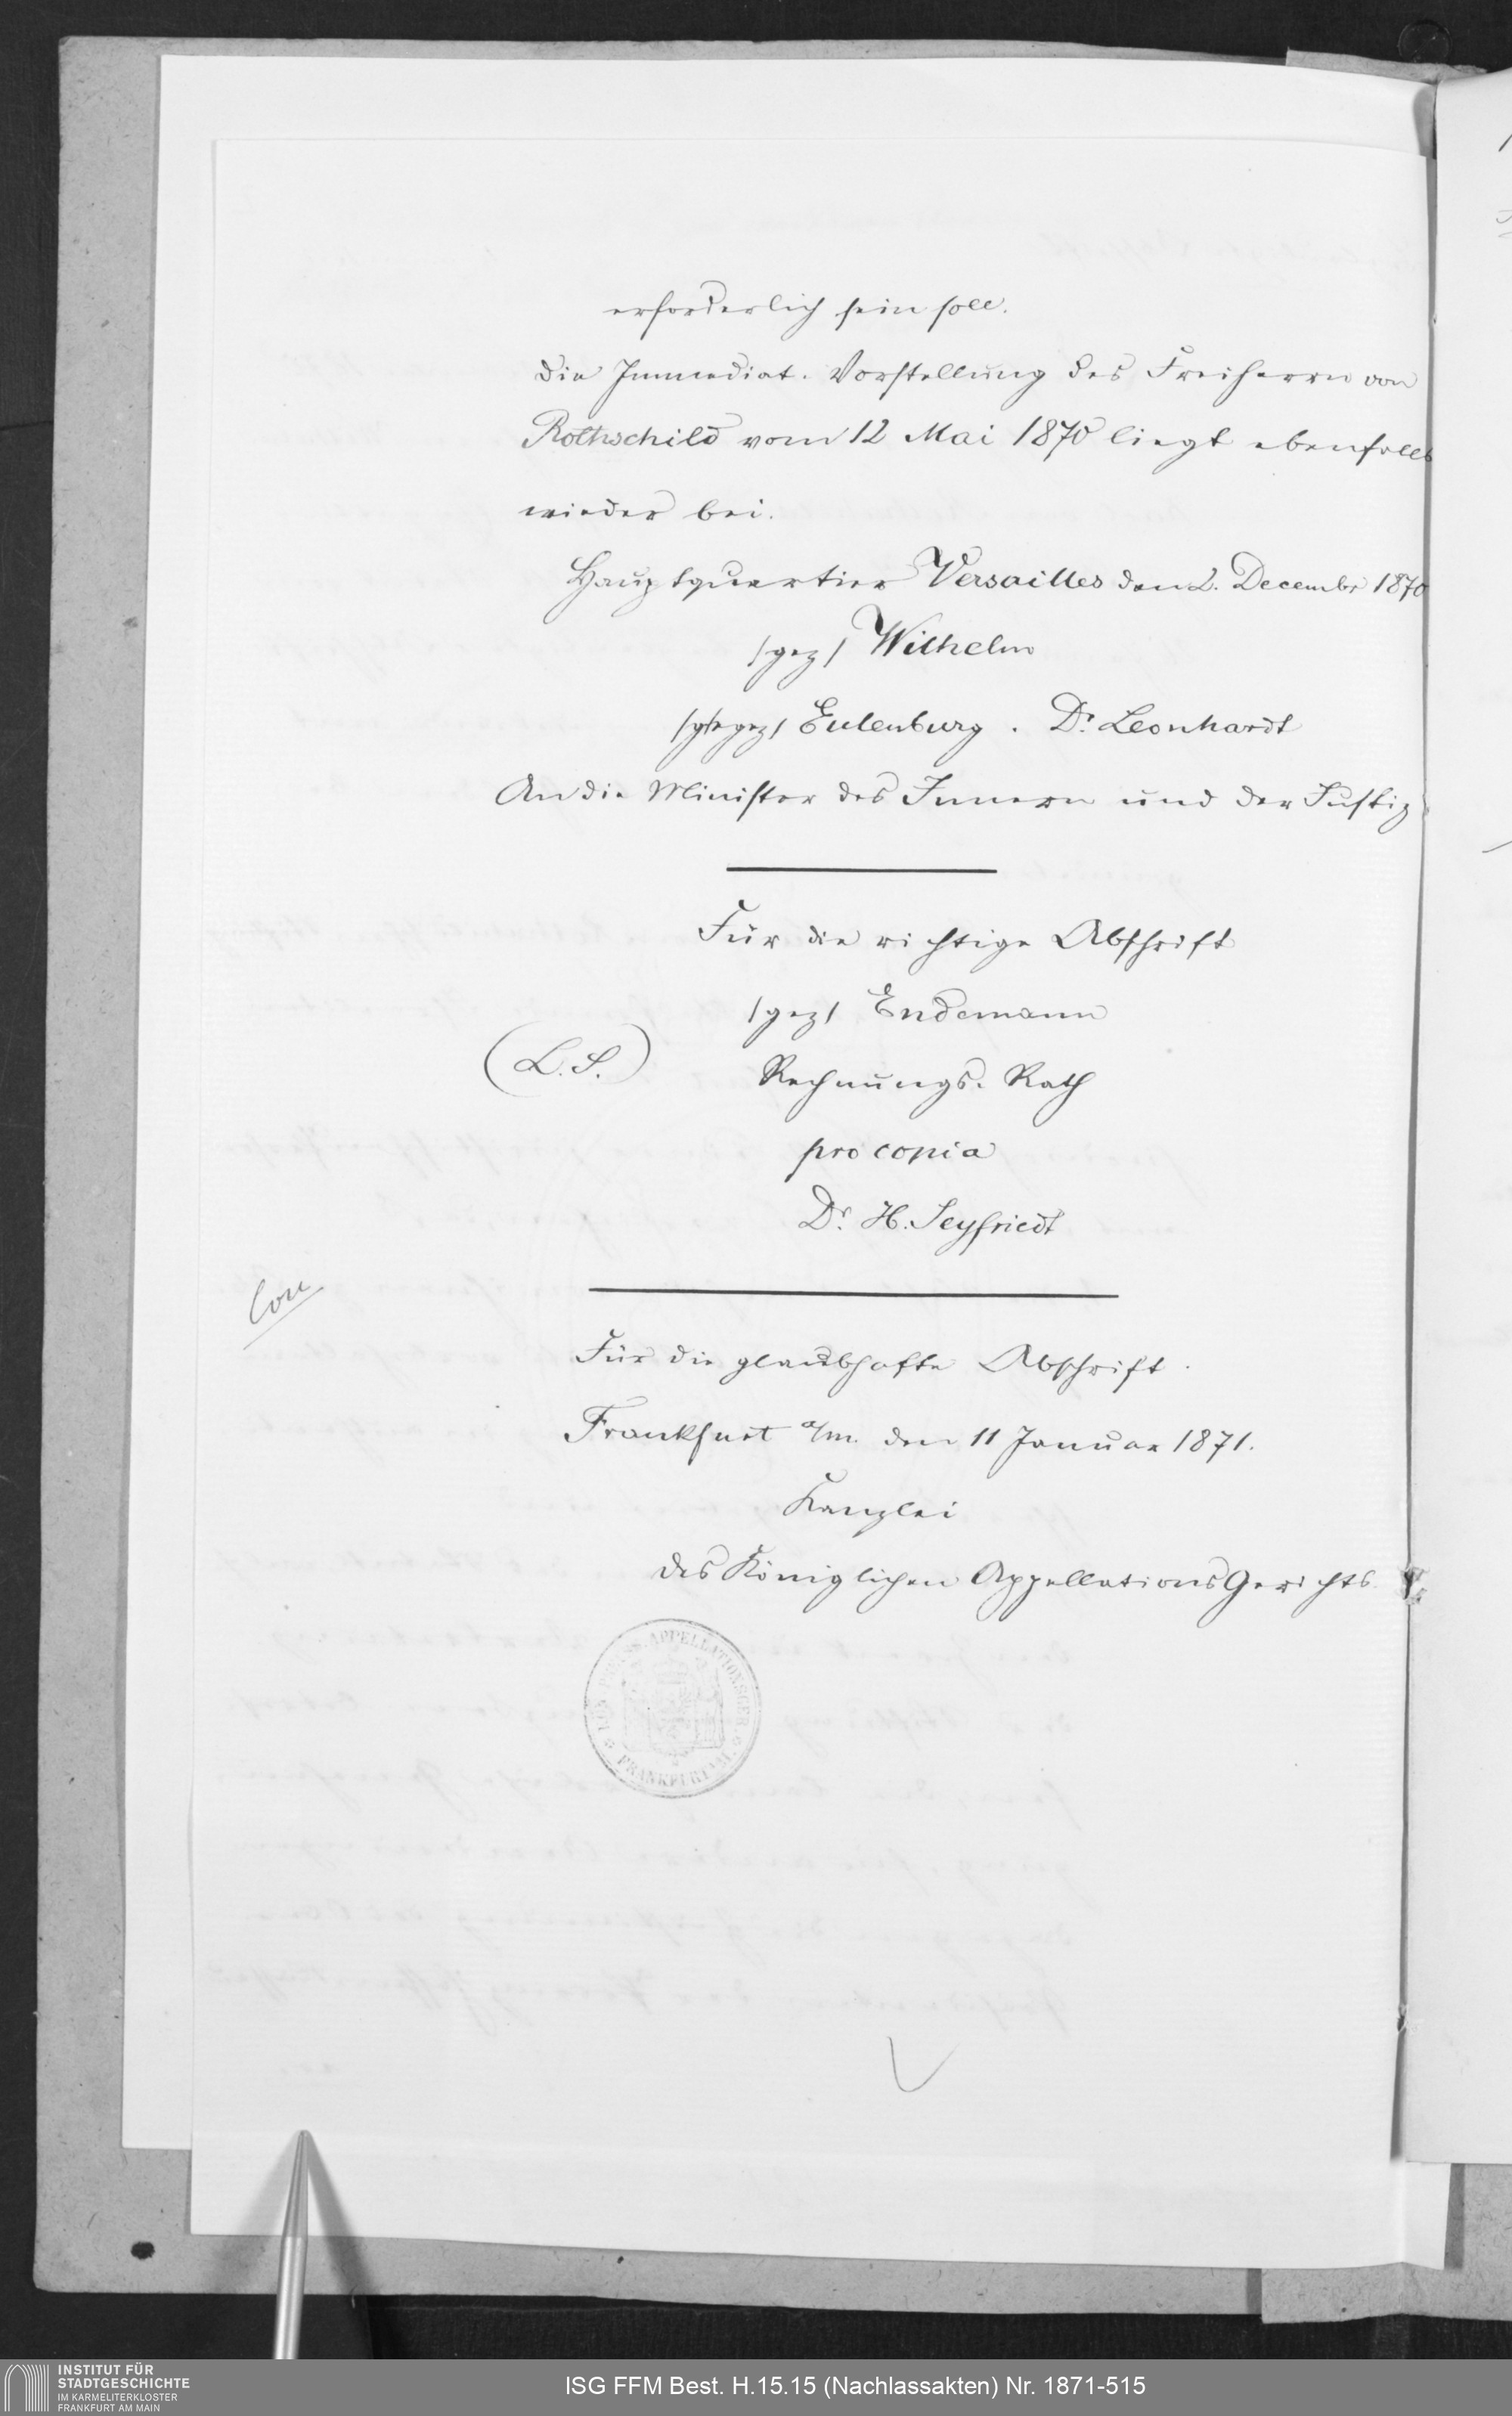 erforderlich sein soll.
Die Immediat-Vorstellung des Freiherrn von
Rothschild vom 12 Mai 1870 liegt ebenfalls
wieder bei.
Hauptquartier Versailles den 2. Decembr 1870
/gez/ Wilhelm
/ggez/ Eulenburg . Dr. Leonhardt
An die Minister des Innern und der Justiz
Für die richtige Abschrift
/gez/ Endemann
(L. S.)
Rechnungs-Rath
pro copia
Dr. H. Seyfriedt
Für die glaubhafte Abschrift.
Frankfurt a/m. den 11 Januar 1871.
Kanzlei
des Königlichen AppellationsGerichts.
PREUSS. APPELLATIONSGER.
FRANKFURT A/M.
INSTITUT FÜR
STADTGESCHICHTE
IM KARMELITERKLOSTER
FRANKFURT AM MAIN
ISG FFM Best. H.15.15 (Nachlassakten) Nr. 1871-515